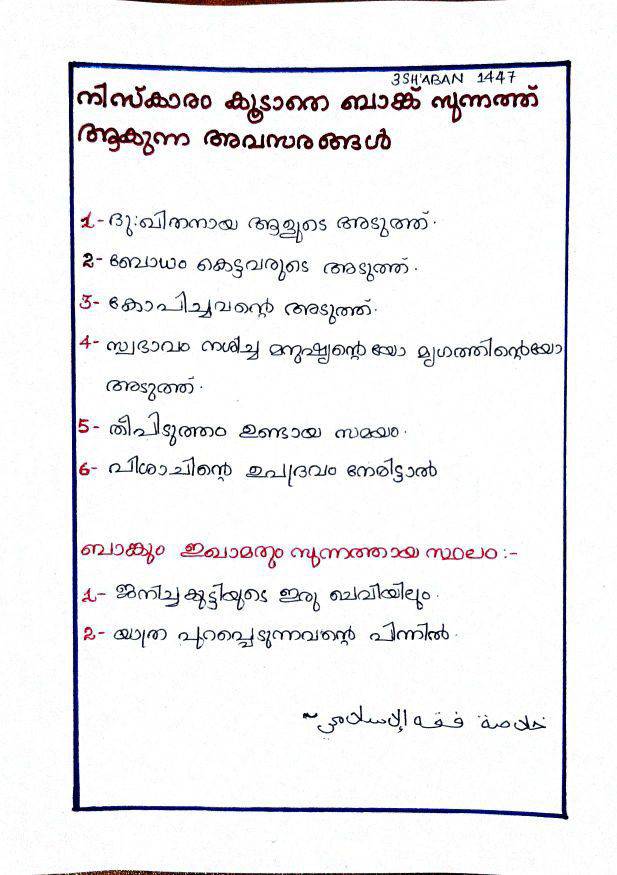 3 SH'ABAN 1447
നിസ്കാരം കൂടാതെ ബാങ്ക് സുന്നത്ത്
ആകുന്ന അവസരങ്ങൾ
1- ദു:ഖിതനായ ആളുടെ അടുത്ത്.
2- ബോധം കെട്ടവരുടെ അടുത്ത്.
3- കോപിച്ചവന്റെ അടുത്ത്.
4- സ്വഭാവം നശിച്ച മനുഷ്യന്റെയോ മൃഗത്തിന്റെയോ
അടുത്ത്.
5- തീപിടുത്തം ഉണ്ടായ സമയം.
6- പിശാചിന്റെ ഉപദ്രവം നേരിട്ടാൽ
ബാങ്കും ഇഖാമതും സുന്നത്തായ സ്ഥലം :-
1- ജനിച്ച കുട്ടിയുടെ ഇരു ചെവിയിലും.
2- യാത്ര പുറപ്പെടുന്നവന്റെ പിന്നിൽ.
خلاصة فقه الإسلامي ~